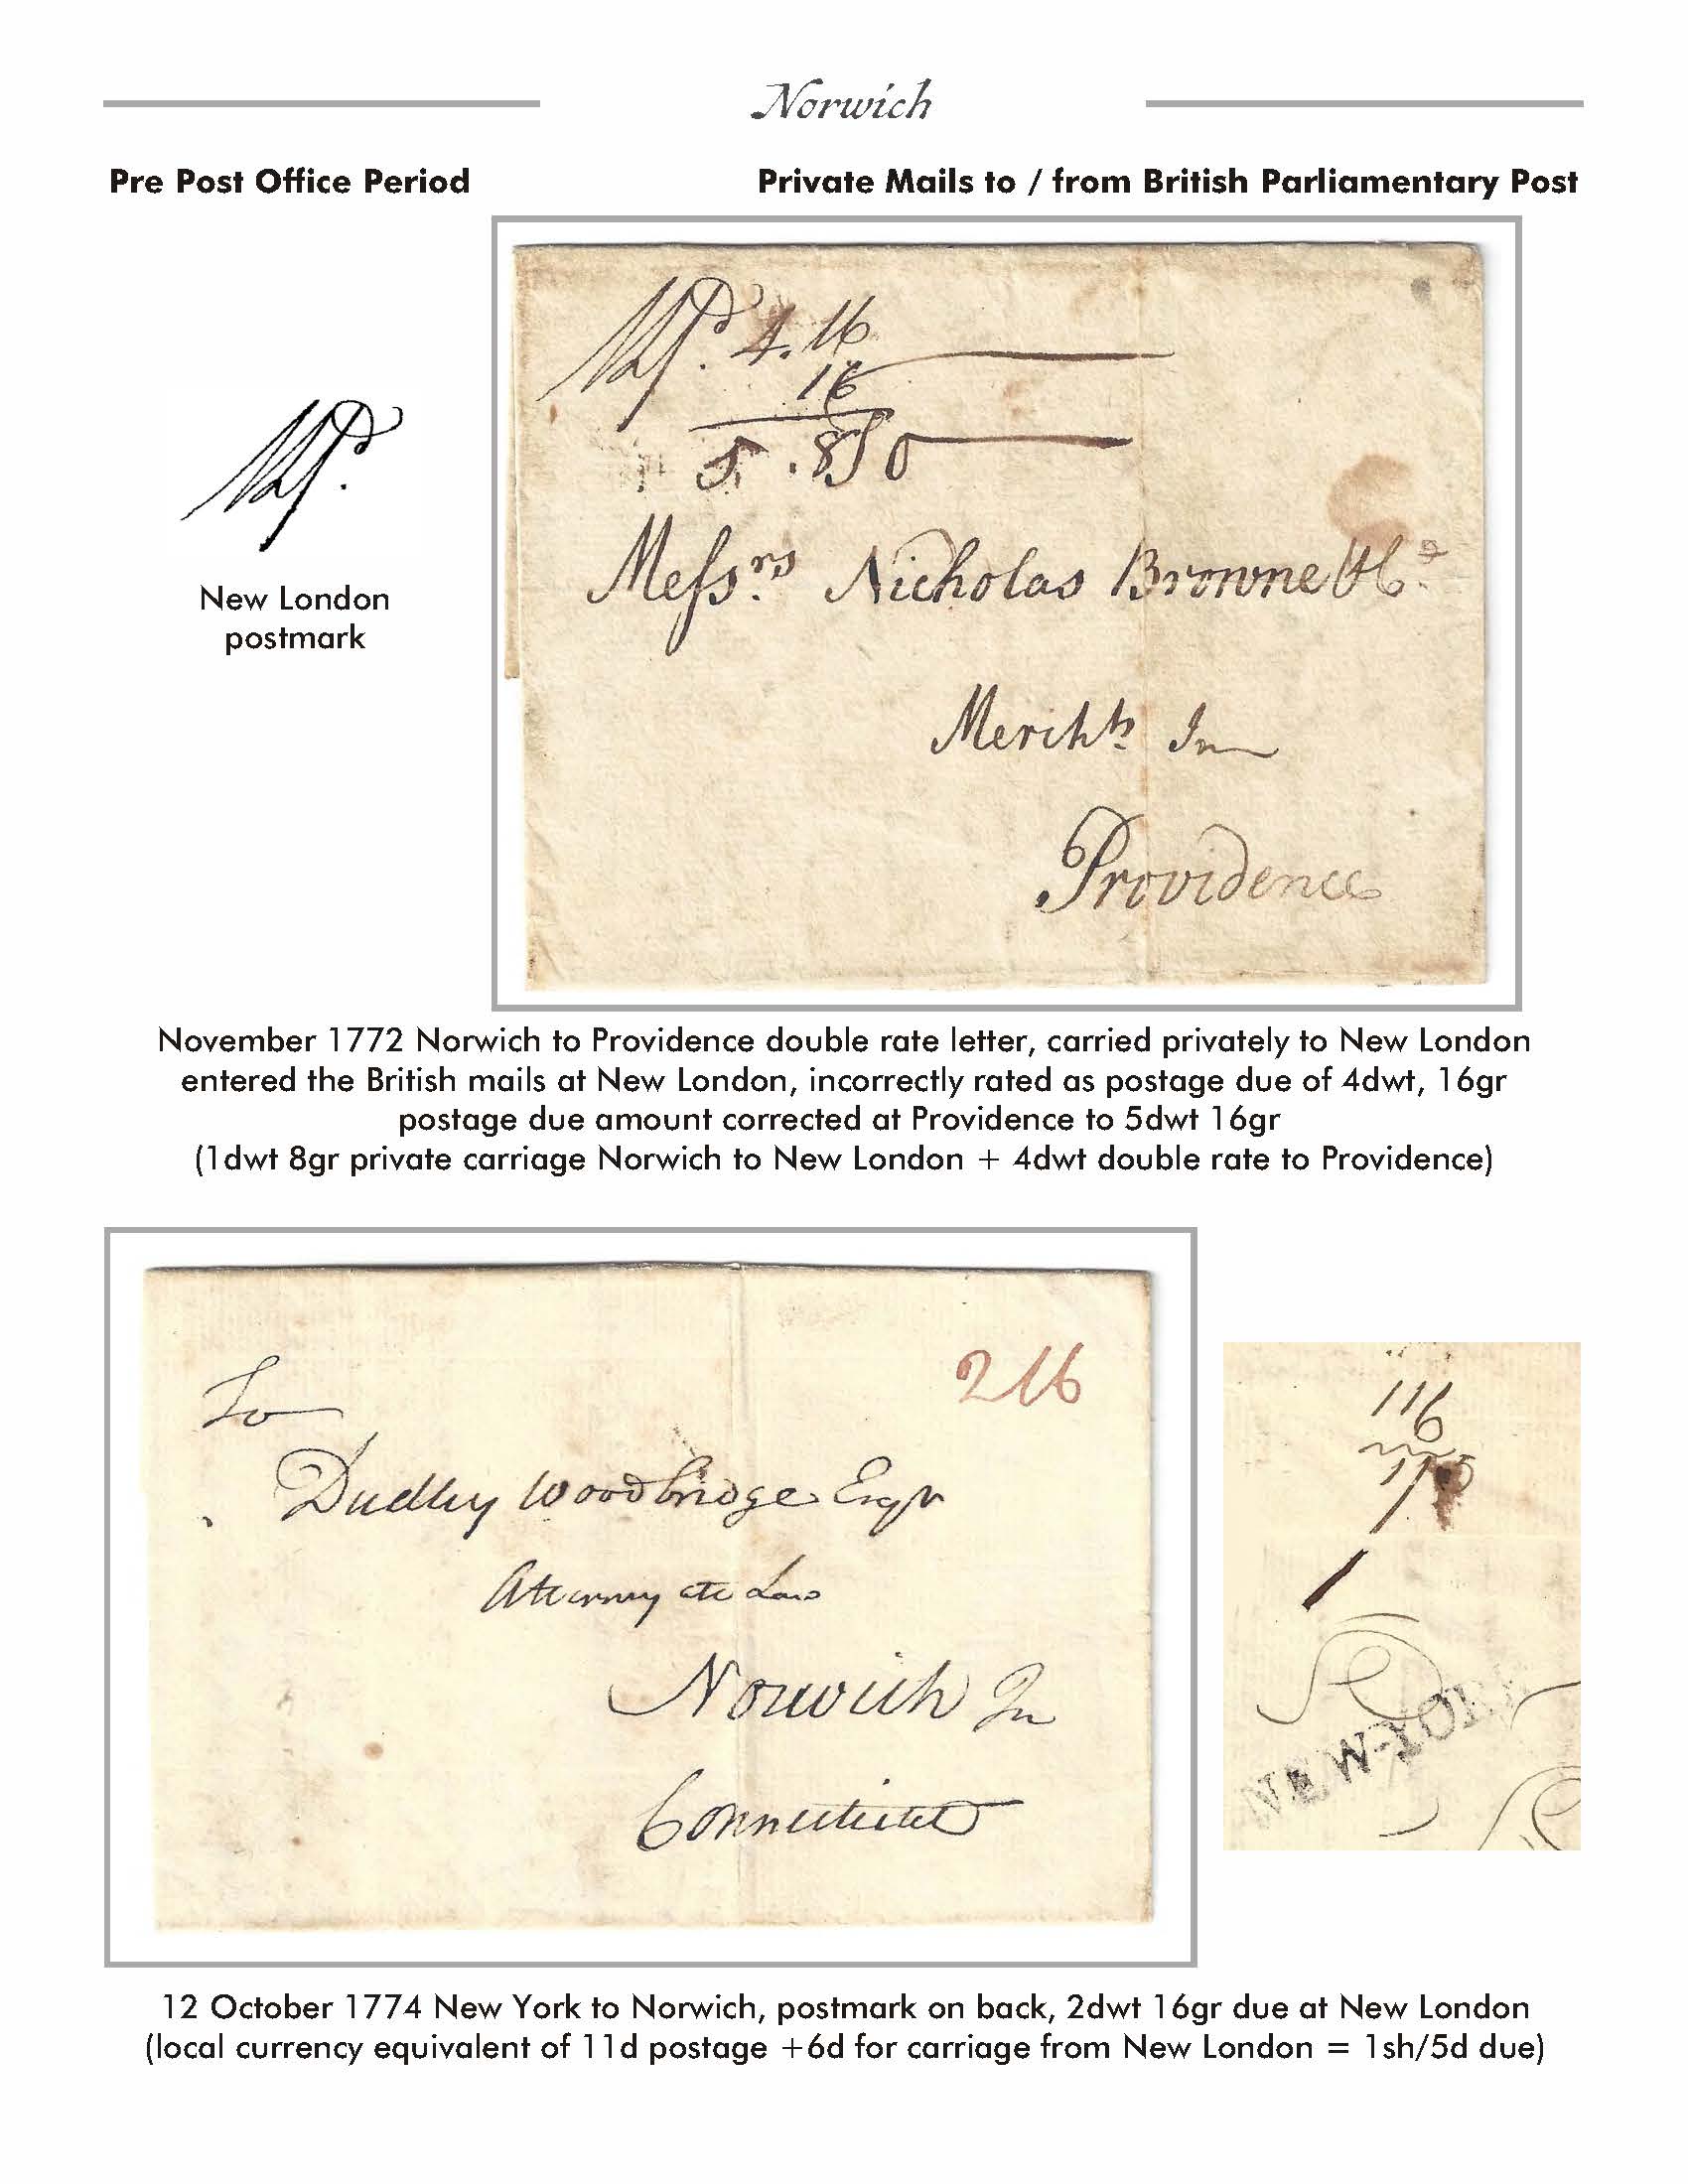 Norwich
Pre Post Office Period
Private Mails to / from British Parliamentary Post
4.16
16
5.8
Mefsrs. Nicholas Browne & Co.
Merchts. In
Providence
New London
postmark
November 1772 Norwich to Providence double rate letter, carried privately to New London
entered the British mails at New London, incorrectly rated as postage due of 4dwt, 16gr
postage due amount corrected at Providence to 5dwt 16gr
(1dwt 8gr private carriage Norwich to New London + 4dwt double rate to Providence)
To
216
Dudley Woodbridge Esqr
Attorney att Law
Norwich In
Connecticut
116
1/5
NEW-YORK
12 October 1774 New York to Norwich, postmark on back, 2dwt 16gr due at New London
(local currency equivalent of 11d postage +6d for carriage from New London = 1sh/5d due)